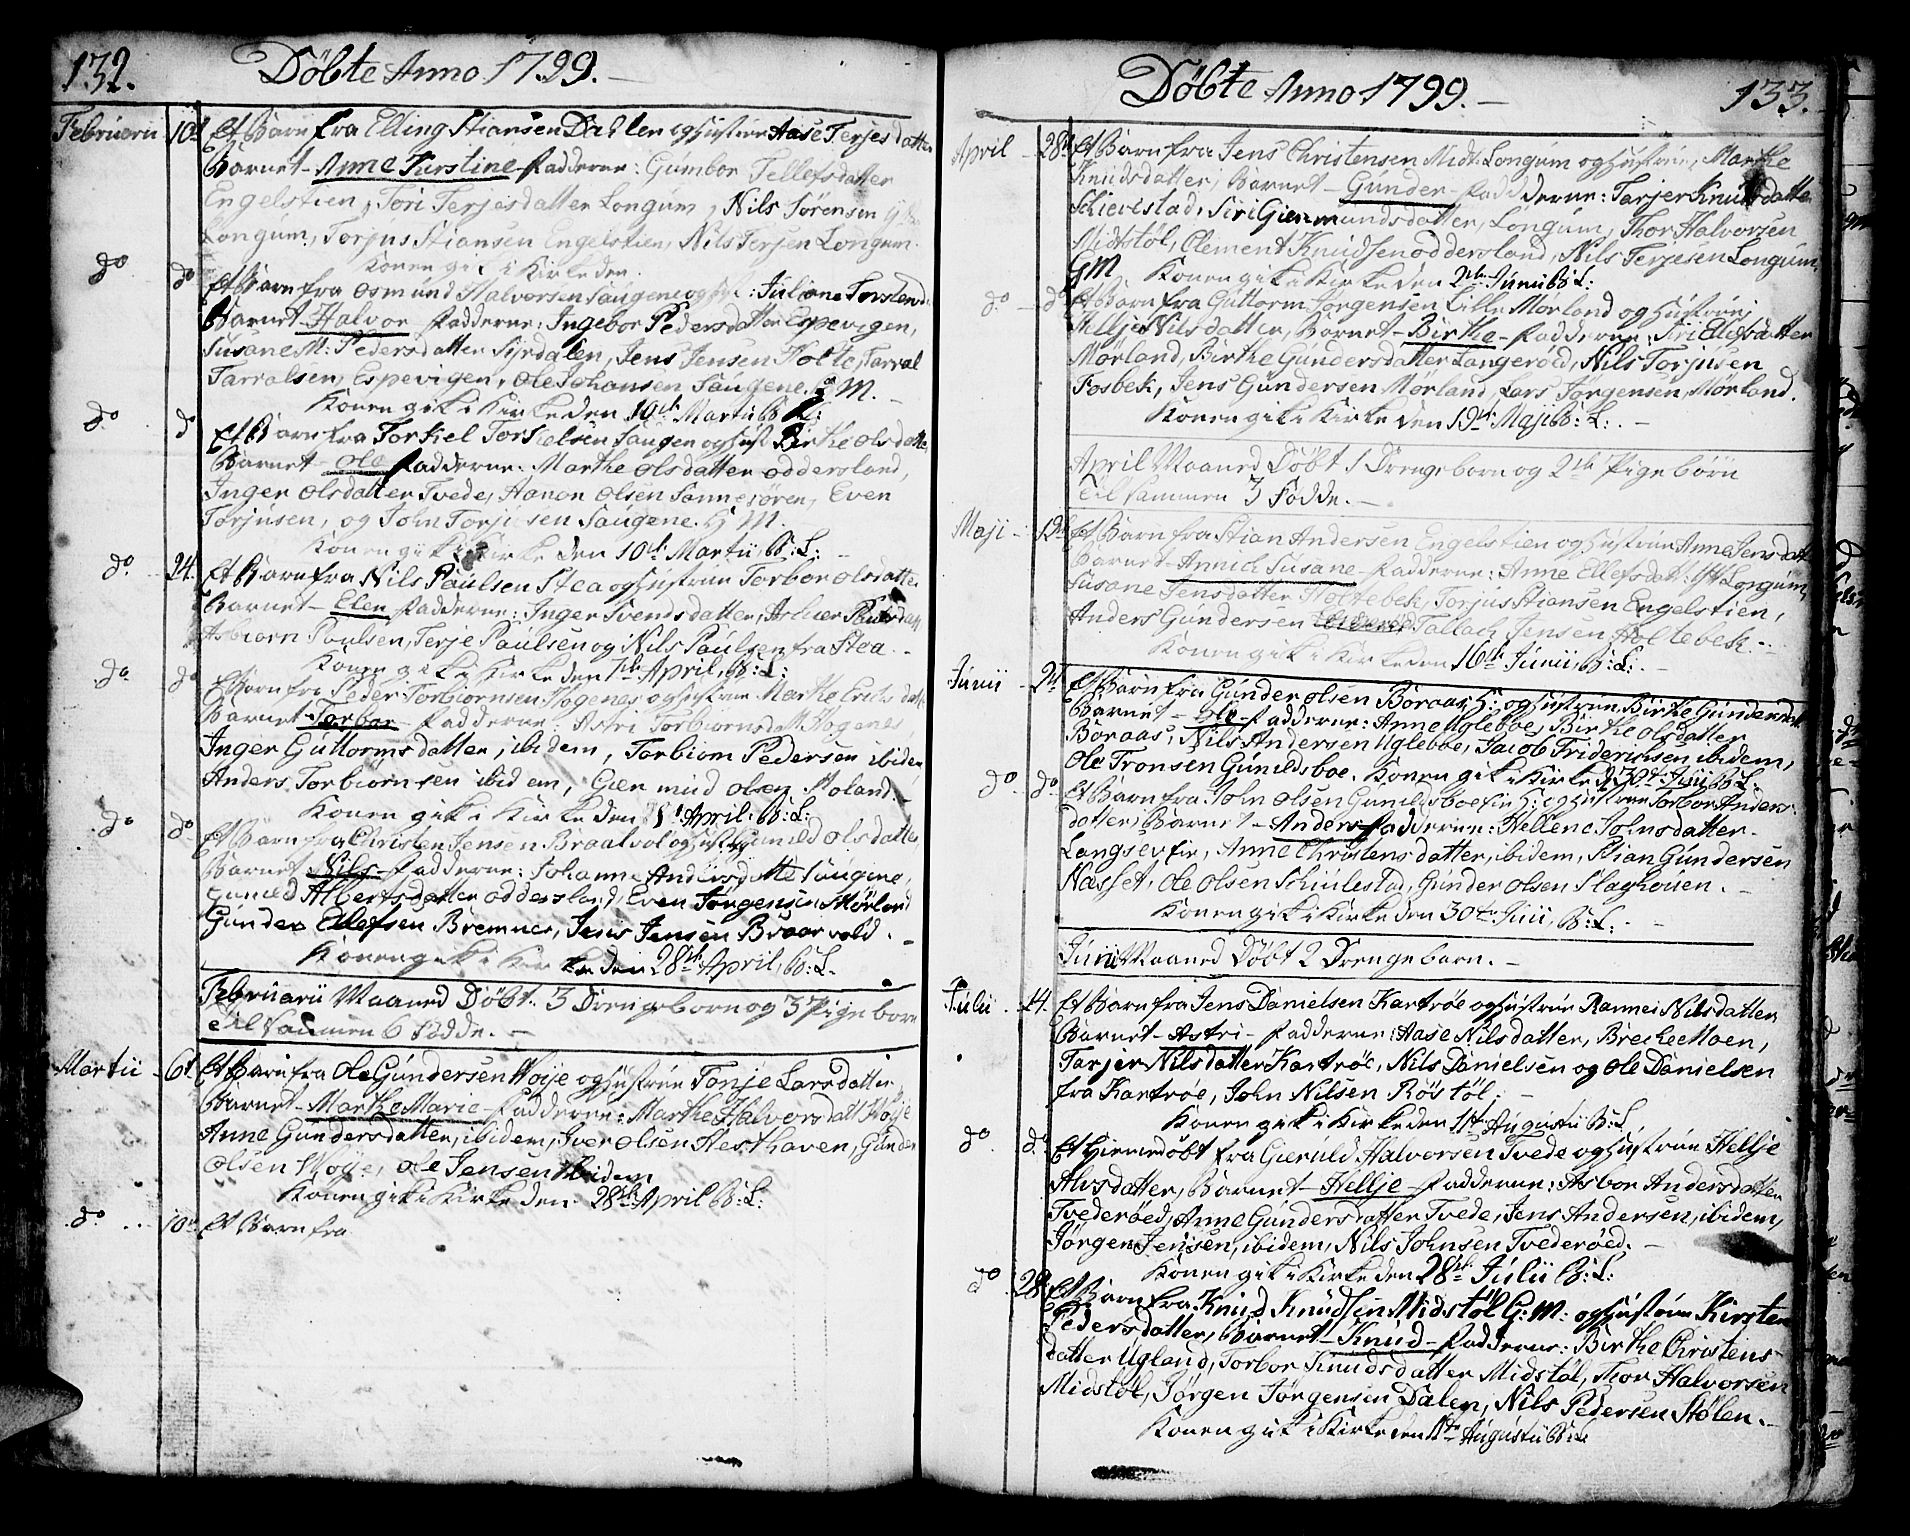 132. Döbte Anno 1799.
Februarii 10d Et Barn fra Elling Stiansen Dahlen og hustrue Aase Terjesdatter
Barnet - Anne Kirstine - Fadderne: Gumbor Tellefsdatter
Engelstien, Tori Terjesdatter Longum, Nils Sörensen
Longum, Torjus Stiansen Engelstien, Nils Terjsen Longum.
Konen gik i Kirke den
do do Et Barn fra Osmund Halvorsen Saugene og H: Juliane Torstensd:
Barnet - Halvor Fadderne: Ingebor Pedersdatter Espevigen,
Susane M: Pedersdatter Syrdalen, Jens Jensen Holte, Tarral
Tarralsen, Espevigen, Ole Johansen Saugene, G M.
Konen gik i Kirke den 10de Martii B: L:
do do Et Barn fra Torkel Torkielsen Saugen og hust Birthe Olsdatter
Barnet - Ole Fadderne: Marthe Olsdatter Oddersland,
Inger Olsdatter Tvede, Aanon Olsen Sannesören, Even
Torjusen, og John Torjusen Saugene. G M.
Konen gik i Kirke den 10de Martii B: L:
do 24. Et Barn fra Nils Paulsen Stea og hustrue Torbor Olsdatter
Barnet - Elen Fadderne: Inger Svendsdatter, Aslaer Paulsdatt
Asbiorn Poulsen, Terje Paulsen og Nils Paulsen fra Stea.
Konen gik i Kirke den 7de April, B: L:
do do Et Barn fra Peder Torbiornsen Hogenes og hustrue Marthe Erichsdatt
Barnet - Torbor - Fadderne: Astri Torbiornsdatt Hogenes,
Inger Guttormsdatter, ibidem, Torbiorn Pedersen ibidem
Anders Torbiornsen ibidem, Giermund Olsen Moland.
Konen gik i Kirke den 28d April. B: L:
do do Et Barn fra Christen Jensen Braatvol og hust Gunild Olsdatter,
Barnet Nils - Fadderne: Johanne Andersdatte Saugene,
Gunild Albertsdatter Oddersland, Even Jörgensen Mörland
Gunder Ellefsen Bremnes, Jens Jensen Braarvold.
Konen gik i Kirke den 28de April, B: L.
Februarii Maaned Döbt. 3 Drengeborn og 3 Pigeborn
til sammen 6 födde.
Martii 6t. Et Barn fra Ole Gundersen Höije og hustrue Tonje Larsdatter
Barnet - Marthe Marie - Fadderne: Marthe Halvorsdatt Höije
Anne Gundersdatter, ibidem, Iver Olsen Nesthaven, Gunder
Olsen Höije, Ole Jensen ibidem
Konen gik i Kirke den: 28de April B: L:
do 10d Et Barn fra
Döbte Anno 1799. 133.
April 28de Et Barn fra Jens Christensen Midt: Longum og hustrue, Marthe
Knudsdatter; Barnet - Gunder - Fadderne: Tarjer Knudsdatter
Skierestad, Siri Giermundsdatter, Longum, Thor Halvorsen
Midtstöl, Clement Knudsen Oddersland, Nils Terjesen Longum,
GM Konen gik i Kirke den 2de Junii B: L:
do do Et Barn fra Guttorm Jörgensen Lille Mörland og hustrue,
Helljе Nilsdatter, Barnet - Birthe - Fadderne: Siri Ellefsdatter
Mörland, Birthe Gundersdatter Langeröed, Nils Torjusen
Fosbek, Jens Gundersen Mörland, Lars Jörgensen, Mörland.
Konen gik i Kirke den 19de Maji B: L:.
April Maaned Döbt 1 Drengeborn og 2de Pigebörn
til sammen 3 Födde.
Maji 12d Et Barn fra Stian Andersen Engelstien og hustrue Anne Jensdat
Barnet - Annich Susane - Fadderne: Anne Ellefsdatt: Longum,
Susane Jensdatter Holtebek, Torjus Stiansen Engelstien,
Anders Gundersen Tallach Jensen Holtebek.
Konen gik i Kirke den 16de Junii, B: L:.
Junii 2d Et Barn fra Gunder Olsen Boraas, H: og hustrue Birthe Gundersdatt
Barnet - Ole - Fadderne: Anne Ugleboe, Birthe Olsdatter
Boraas, Nils Andersen Ugleboe, Jacob Friderichsen ibidem,
Ole Tronsen Gunildsboe. Konen gik i Kirke d 30de Junii B: L.
do do Et Barn fra John Olsen Gunildsboe og hustrue Torbor Anders-
datter, Barnet - Anders Fadderne: Hellene Johnsdatter
Langsev, Anne Christensdatter, ibidem, Stian Gundersen
Næsset, Ole Olsen Skiulestad, Gunder Olsen Slaghouen.
Konen gik i Kirke den 30te Junii, B: L:
Junii Maaned Döbt 2 Drengebarn.
Julii 14. Et Barn fra Jens Danielsen Kartröe og hustrue Rannei Nilsdatter
Barnet - Astri - Fadderne: Aase Nilsdatter, Breckee Moen,
Tarjer Nilsdatter Kartröe, Nils Danielsen og Ole Danielsen
fra Kartröe, John Nilsen Röstöl.
Konen gik i Kirke den 11te Augustii B: L
do do Et Hiemedöbt fra Gieruld Halvorsen Tvede og hustrue Hellje
Alvsdatter, Barnet - Hellje - Fadderne: Asbor Andersdatter
Tvederöed, Anne Gundersdatter Tvede, Jens Andersen, ibidem,
Jörgen Jensen, ibidem, Nils Johnsen Tvederöed.
Konen gik i Kirke den 28de Julii B: L:
do 28d Et Barn fra Knud Knudsen Midstöl G: M: og hustrue Kirsten
Pedersdatter, Barnet - Knud - Fadderne: Birthe Christens-
datter Ugland, Torbor Knudsdatter Midstöl, Thor Halvorsen
Midstöl, Jörgen Jörgensen Dalen, Nils Pedersen Stölen.
Konen gik i Kirke den 11te Augustii B: L